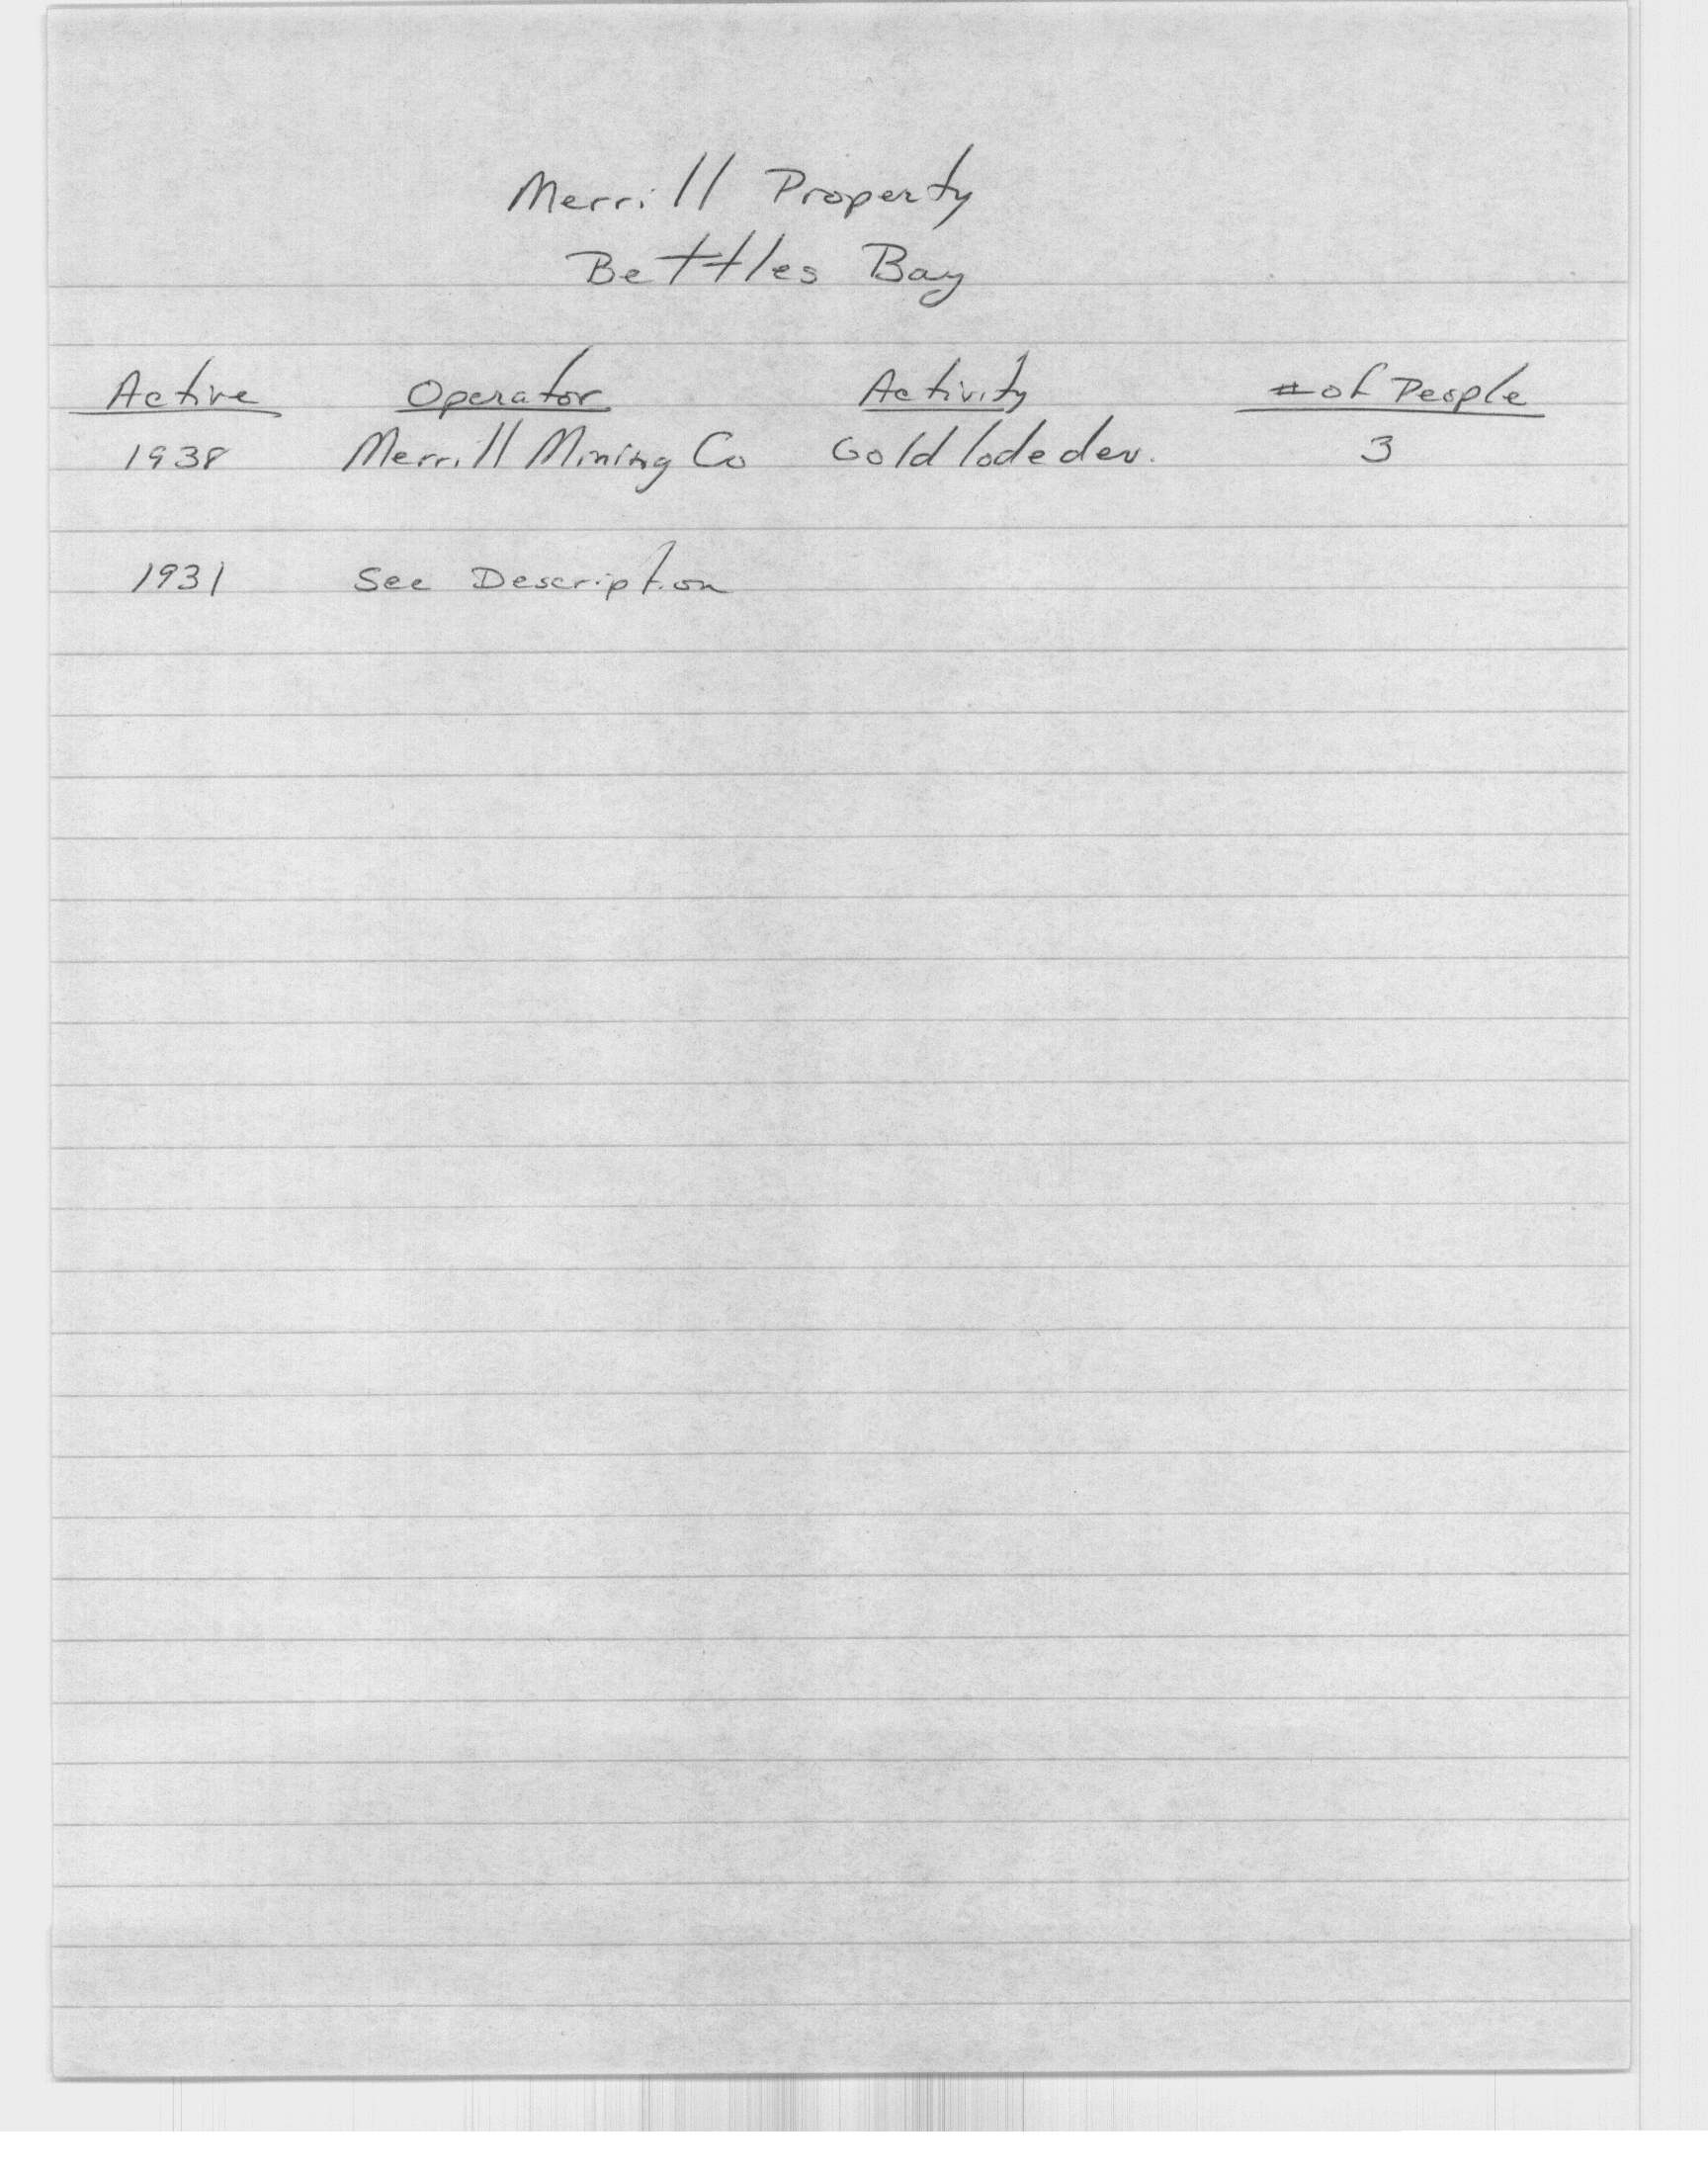 Merrill Property
Bettles Bay
Active Operator Activity # of People
1938 Merrill Mining Co Gold lode dev. 3
1931 See Description